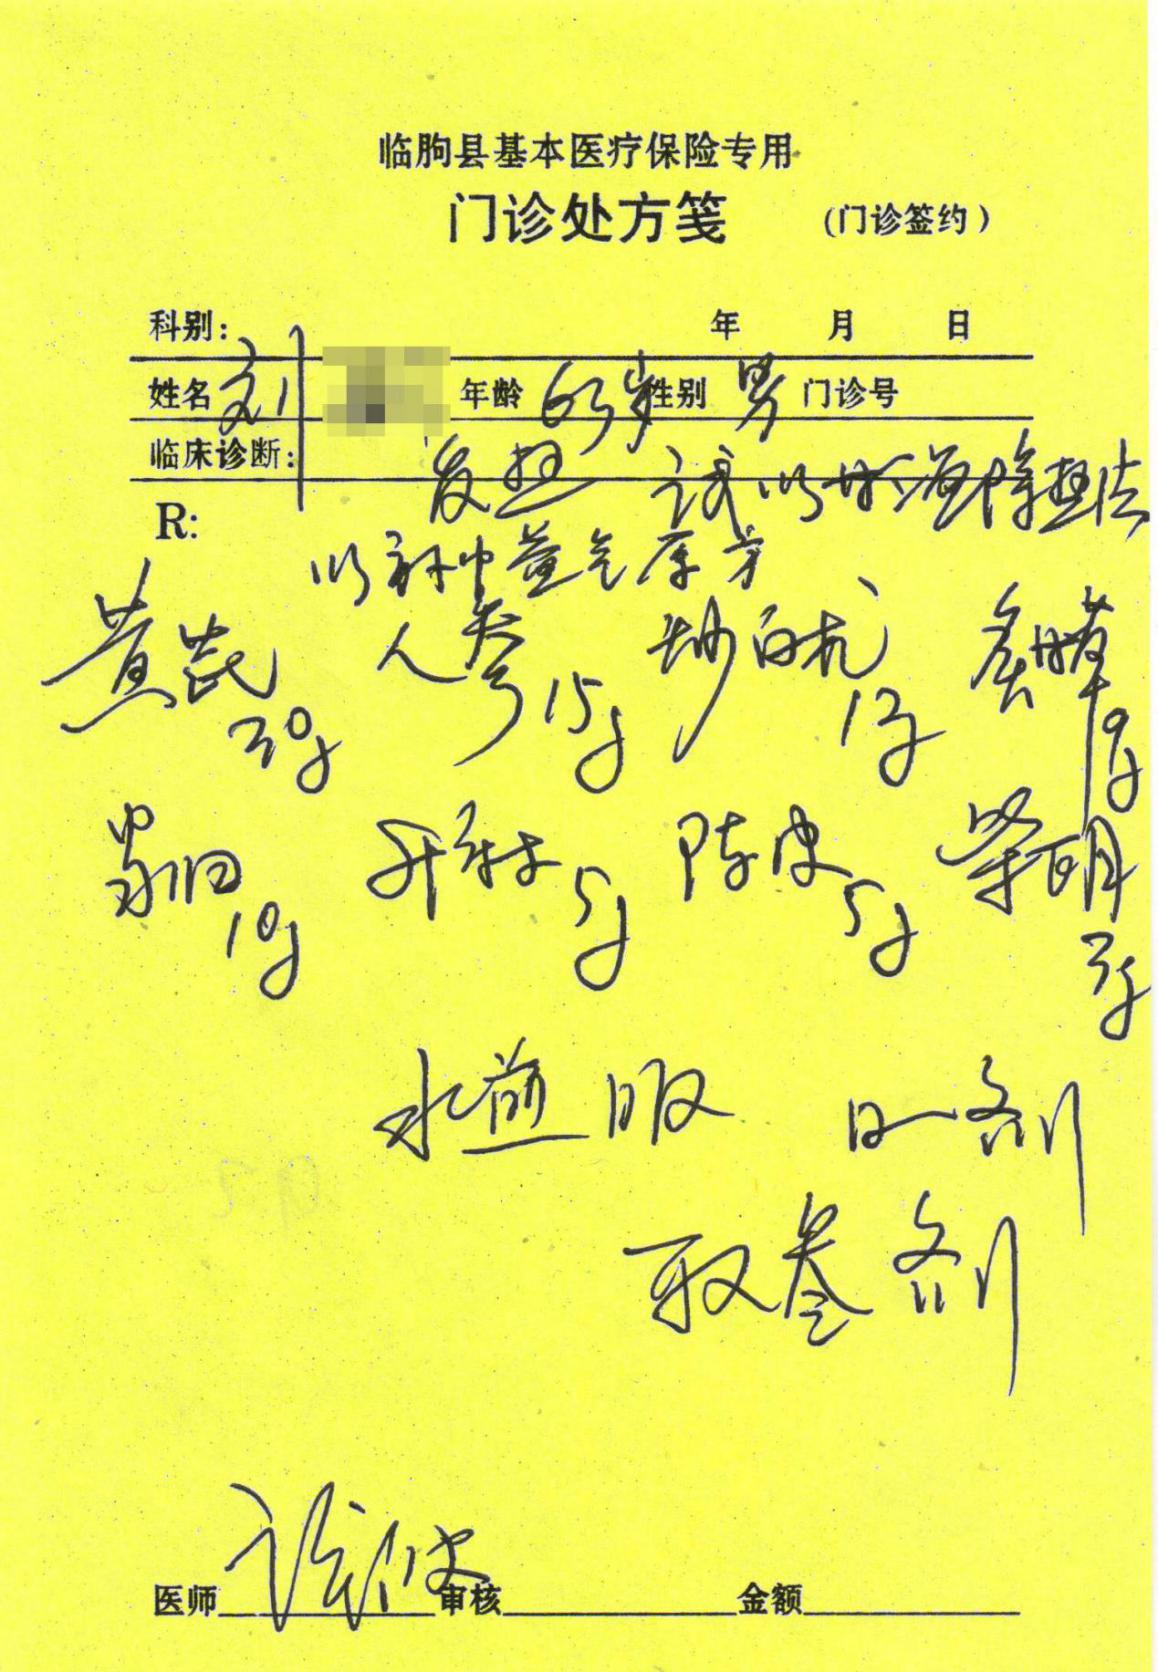 临朐县基本医疗保险专用
门诊处方笺 (门诊签约)
科别: 年 月 日
姓名 刘 年龄 63岁 性别 男 门诊号
临床诊断: 发热 试以甘温除热法
R: 以补中益气原方
黄芪 30g 人参 15g 炒白术 12g 炙甘草 9g
当归 10g 升麻 5g 陈皮 5g 柴胡 3g
水煎服 日一剂
取叁剂
医师 审核 金额